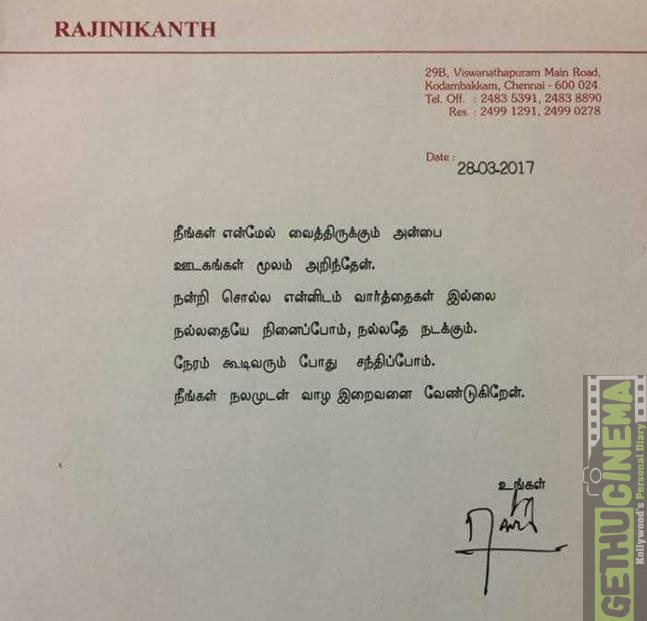 RAJINIKANTH
29B, Viswanathapuram Main Road,
Kodambakkam, Chennai - 600 024.
Tel. Off. : 2483 5391, 2483 8890
Res. : 2499 1291, 2499 0278
Date : 28-03-2017
நீங்கள் என்மேல் வைத்திருக்கும் அன்பை
ஊடகங்கள் மூலம் அறிந்தேன்.
நன்றி சொல்ல என்னிடம் வார்த்தைகள் இல்லை
நல்லதையே நினைப்போம், நல்லதே நடக்கும்.
நேரம் கூடிவரும் போது சந்திப்போம்.
நீங்கள் நலமுடன் வாழ இறைவனை வேண்டுகிறேன்.
உங்கள்
GETHUCINEMA
Kollywood's Personal Diary